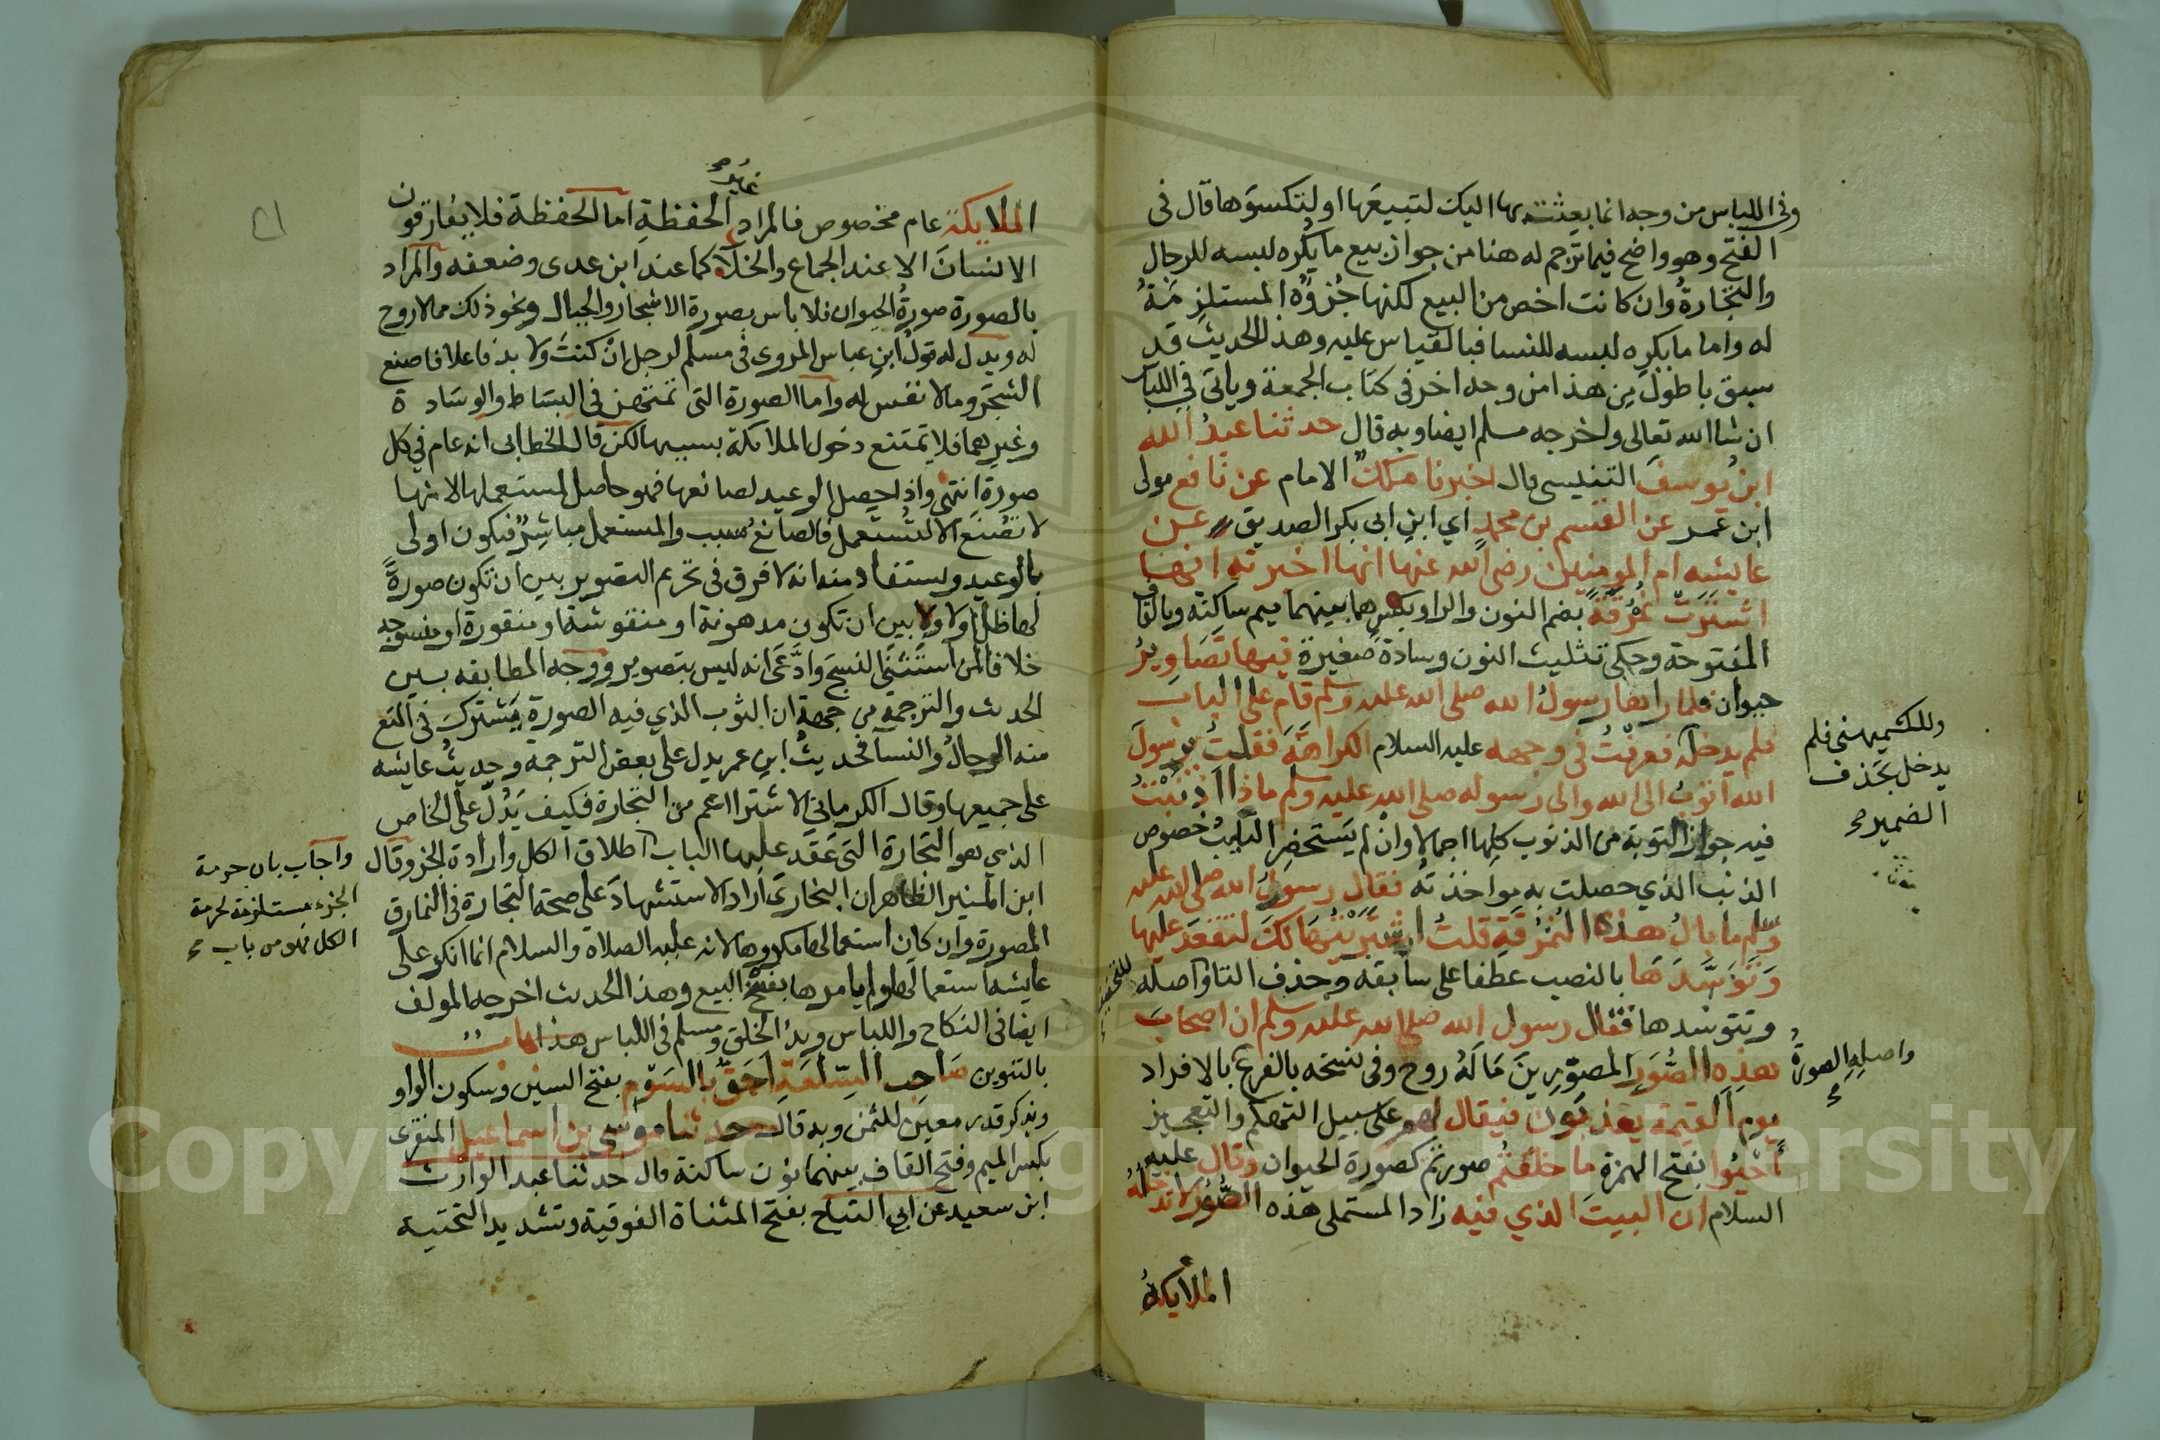 وفى اللباس من وجه انما بعثت بها اليك لتبيعها او لتكسوها قال فى
الفتح وهو واضح فيما ترجم له هنا من جواز بيع ما يكره لبسه للرجال
والتجارة وان كانت اخص من البيع لكنها جزؤه المستلزمة
له واما ما يكره لبسه للنسا فبالقياس عليه وهذا الحديث قد
سبق باطول من هذا من وجه اخر فى كتاب الجمعة وياتى في اللباس
ان شا الله تعالى واخرجه مسلم ايضا وبه قال حدثنا عبد الله
ابن يوسف التنيسى قال اخبرنا ملك الامام عن نافع مولى
ابن عمر عن القسم بن محمد اي ابن ابى بكر الصديق عن
عايشه ام المومنين رضى الله عنها انها اخبرته انها
اشترت نمرقة بضم النون والراو بكسرهما بينهما ميم ساكنه وبالقاف
المفتوحة وحكى تثليث النون وسادة صغيرة فيها تصاوير
حيوان فلما راها رسول الله صلى الله عليه وسلم قام على الباب
فلم يدخله فعرفت فى وجهه عليه السلام الكراهة فقلت يرسول
الله اتوب الى الله والى رسوله صلى الله عليه وسلم ماذا اذنبت
فيه جواز التوبة من الذنوب كلها اجمالا وان لم يستحضر التايب خصوص
الذنب الذي حصلت به مواخذته فقال رسول الله صلى الله عليه
وسلم ما بال هذه النمرقة قلت اشتريتها لك لتقعد عليها
وتوسدها بالنصب عطفا على سابقه وحذف التا واصله للتخفيف
وتتوسدها فقال رسول الله صلى الله عليه وسلم ان اصحاب
هذه الصور المصورين ما له روح وفى نسخه بالفرع بالافراد
يوم القيمة يعذبون فيقال لهم على سبيل التهكم والتعجيز
أحيوا بفتح الهمزة ما خلقتم صورتم كصورة الحيوان وقال عليه
السلام ان البيت الذي فيه زاد المستملى هذه الصور لا تدخله
الملايكة
وللكشميهنى فلم
يدخل بحذف
الضمير صح
واصله الصورة
الملايكة عام مخصوص فالمراد غير الحفظة اما الحفظة فلا يفارقون
الانسان الا عند الجماع والخلا كما عند ابن عدى وضعفه والمراد
بالصورة صورة الحيوان فلا باس بصورة الاشجار والجبال ونحو ذلك مما لا روح
له ويدل له قول ابن عباس المروى فى مسلم لرجل ان كنت ولا بد فاعلا فاصنع
الشجر وما لا نفس له واما الصورة التى تمتهن فى البساط والوسادة
وغيرهما فلا يمتنع دخول الملايكة بسببها لكن قال الخطابى انه عام في كل
صورة انتهى واذا حصل الوعيد لصانعها فهو حاصل لمستعملها لانها
لا تصنع الا لتستعمل فالصانع سبب والمستعمل مباشر فيكون اولى
بالوعيد ويستفاد منه انه لا فرق فى تحريم التصوير بين ان تكون صورة
لها ظل اولا ولا بين ان تكون مدهونة او منقوشة او منقورة او منسوجه
خلافا لمن استثنى النسج وادعى انه ليس بتصوير ووجه المطابقه بين
الحديث والترجمة من جهة ان الثوب الذي فيه الصورة يشترك فى المنع
منه الرجال والنسا فحديث ابن عمر يدل على بعض الترجمة وحديث عايشه
على جميعها وقال الكرمانى الاشترا اعم من التجارة فكيف يدل على الخاص
الذي هو التجارة التى عقد عليها الباب اطلاق الكل وارادة الجز وقال
ابن المنير الظاهر ان البخارى اراد الاستشهاد على صحة التجارة فى النمارق
المصورة وان كان استعمالها مكروها لانه عليه الصلاة والسلام انما انكر على
عايشه استعمالها ولم يامرها بفسخ البيع وهذا الحديث اخرجه المولف
ايضا فى النكاح واللباس وبدء الخلق ومسلم فى اللباس هذا باب
بالتنوين صاحب السلعة احق بالسوم بفتح السين وسكون الواو
وبذكر قدر معين للثمن وبه قال حدثنا موسى بن اسماعيل المنقرى
بكسر الميم وفتح القاف بينهما نون ساكنة قال حدثنا عبد الوارث
ابن سعيد عن ابي التياح بفتح المثناة الفوقية وتشديد التحتية
واجاب بان حرمة
الجزء مستلزمة لحرمة
الكل فهو من باب
Copyright © King Saud University